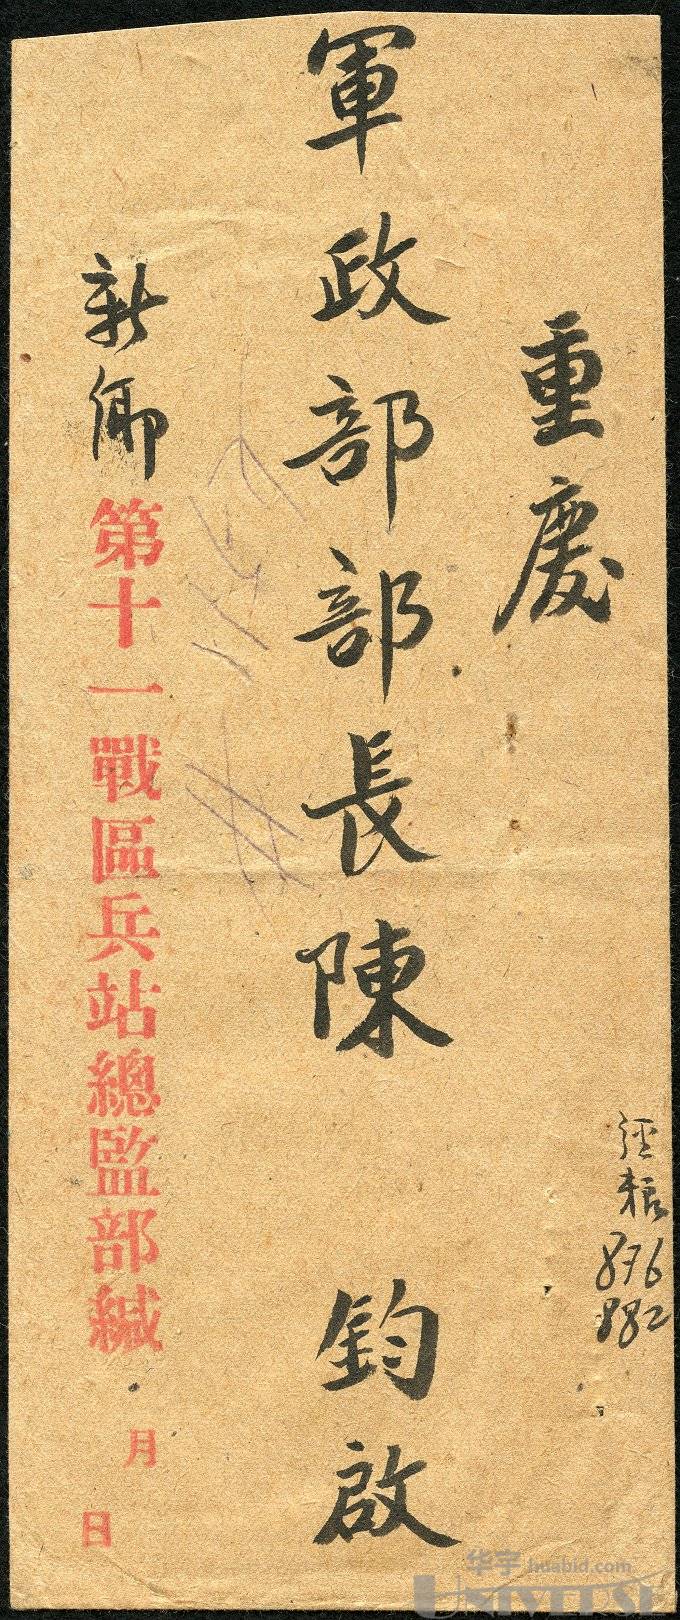 重慶
軍政部部長陳 鈞啟
新鄉 第十一戰區兵站總監部緘
月
日
經糧
876
882
华宇 huabid.com
UNIVERSE